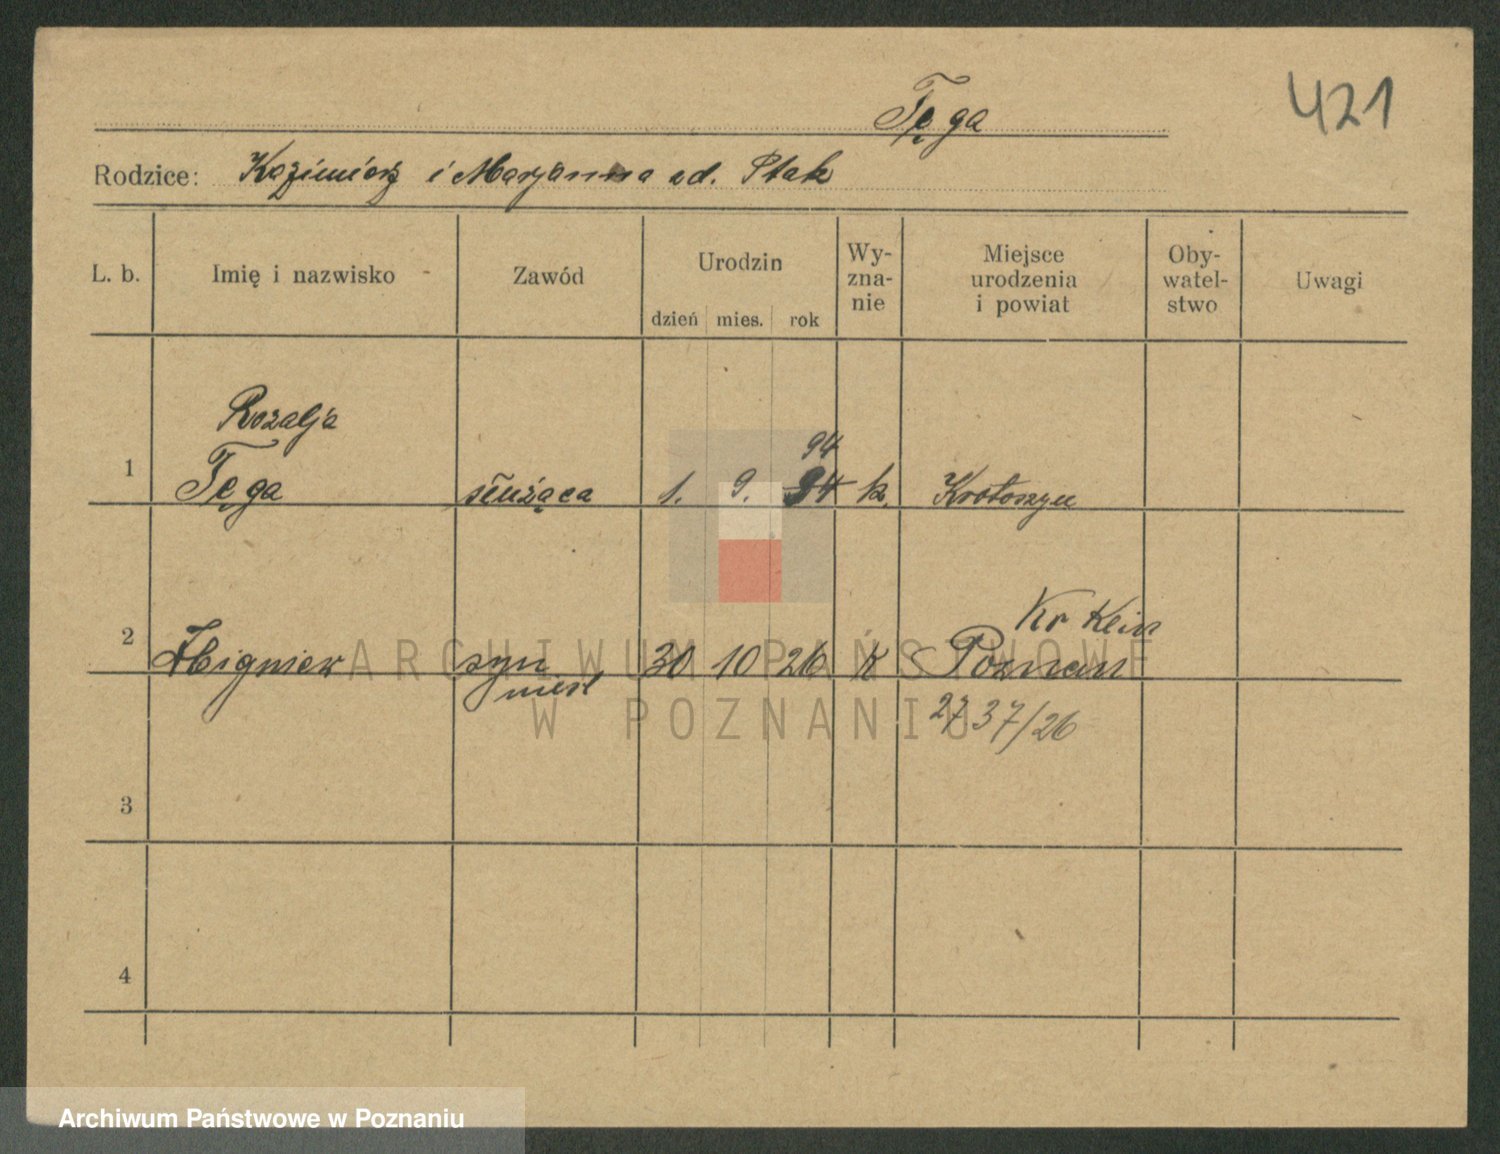 Tęga
421
Rodzice: Kazimierz i Maryanna zd. Ptak
L. b. Imię i nazwisko Zawód Urodzin dzień mies. rok Wy-zna-nie Miejsce urodzenia i powiat Oby-watel-stwo Uwagi
Rozalja
94
1 Tęga służąca 1. 9. 94 k. Krotoszyn
Kr
2 Zbigniew syn 30 10 26 K Poznań
nieśl
2737/26
3
4
ARCHIWUM PAŃSTWOWE
W POZNANIU
Archiwum Państwowe w Poznaniu